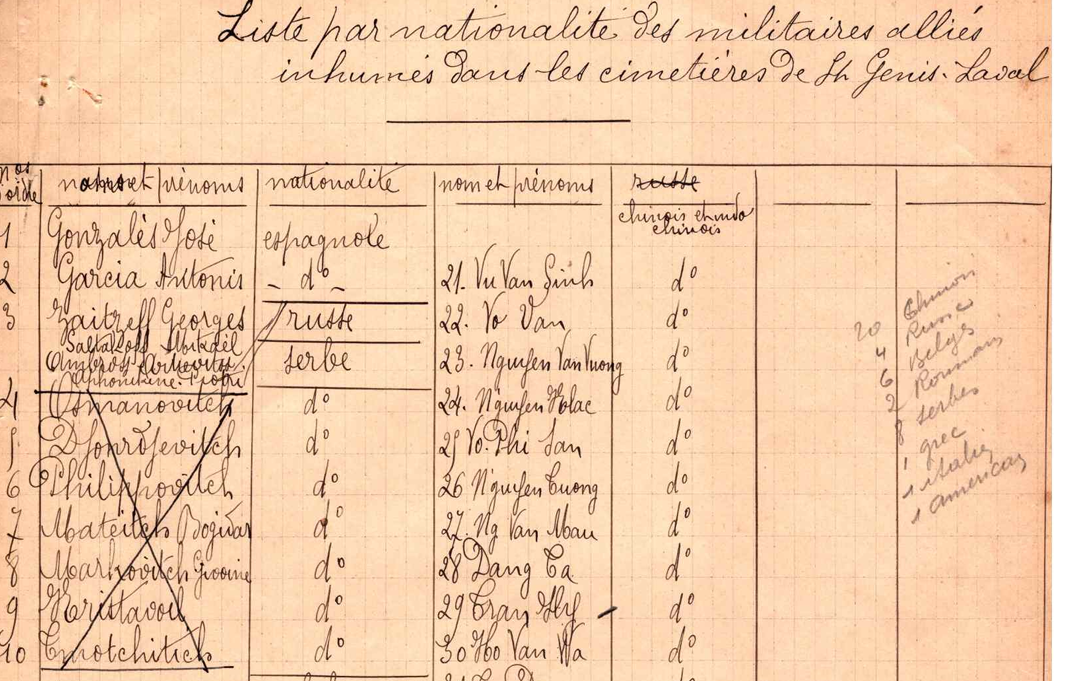 Liste par nationalité des militaires alliés
inhumés dans les cimetières de St Genis-Laval
nos d'ordre noms et prénoms nationalité nom et prénoms russe
chinois et indo
chinois
1 Gonzalès José espagnole
2 Garcia Antonis - do - 21. Vu Van Sinh do
3 Zaitzeff Georges russe 22. Vo Van do
Saltakoff Mikaël
serbe 23. Nguyen Van Vuong do
4 Osmanovitch do 24. Nguyen Hac do
5 Dsordjevitch do 25 Vo Phi San do
6 Philippovitch do 26 Nguyen Cuong do
7 Mateitch Bojidar do 27. Ng Van Mau do
8 Markovitch do 28 Dang Ta do
9 Kristavoil do 29 Tran Hy do
10 Tmotchitch do 30 Ho Van Wa do
20 Chinois
4 Russie
6 Belges
2 Roumain
8 serbes
1 grec
1 italie
1 americain